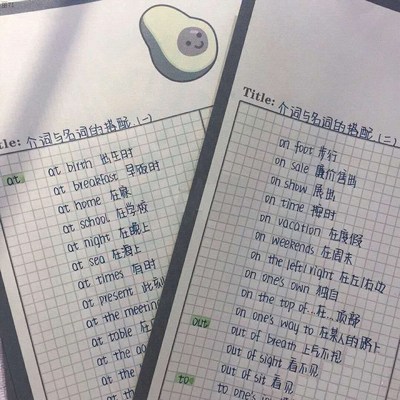 Title: 介词与名词的搭配(一)
at
at birth 出生时
at breakfast 早饭时
at home 在家
at school 在学校
at night 在晚上
at sea 在海上
at times 有时
at present 此刻
at the meeting
at table 在
at the
at the
at
Title: 介词与名词的搭配(二)
on foot 步行
on sale 廉价售出
on show 展出
on time 按时
on vacation 在度假
on weekends 在周末
on the left/right 在左/右边
on one's own 独自
on the top of…在…顶部
on one's way to 在某人的路上
out
out of breath 上气不接
out of sight 看不见
out of sit 看见
to
to one's